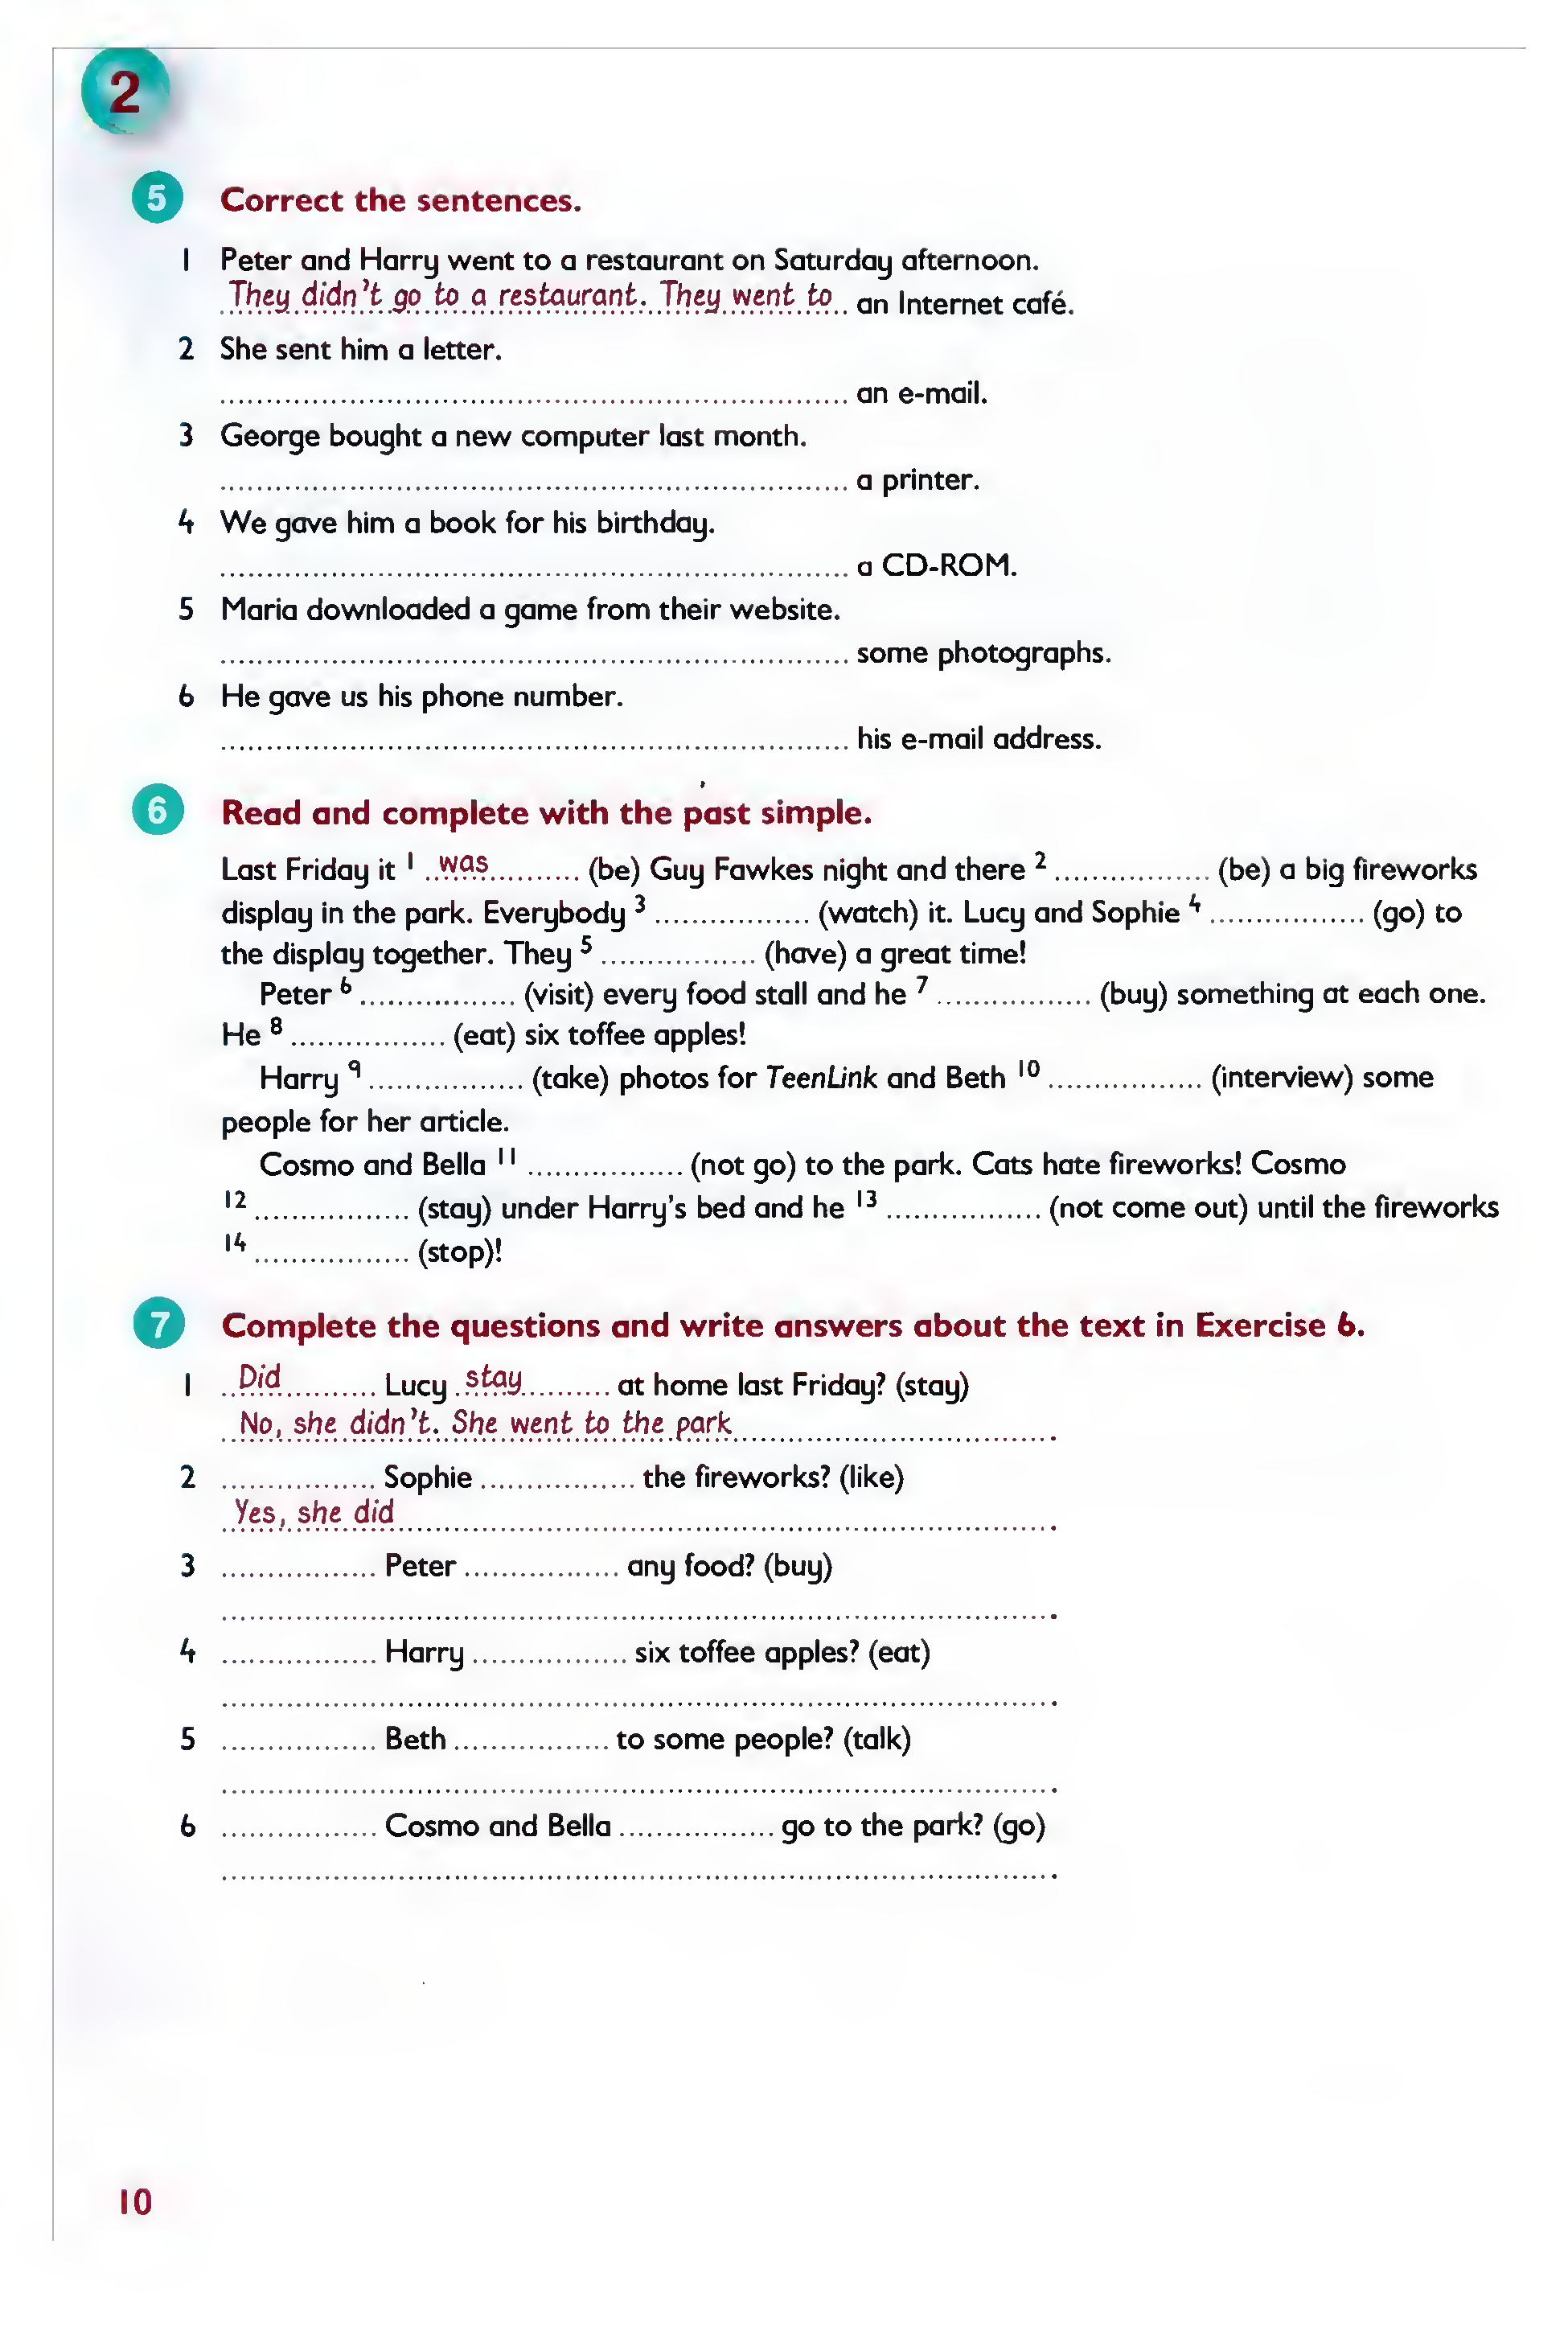 2
5 Correct the sentences.
1 Peter and Harry went to a restaurant on Saturday afternoon.
They didn't go to a restaurant. They went to an Internet café.
2 She sent him a letter.
.................................................................... an e-mail.
3 George bought a new computer last month.
.................................................................... a printer.
4 We gave him a book for his birthday.
.................................................................... a CD-ROM.
5 Maria downloaded a game from their website.
.................................................................... some photographs.
6 He gave us his phone number.
.................................................................... his e-mail address.
6 Read and complete with the past simple.
Last Friday it 1 ..was.......... (be) Guy Fawkes night and there 2 ................. (be) a big fireworks
display in the park. Everybody 3 ................. (watch) it. Lucy and Sophie 4 ................. (go) to
the display together. They 5 ................. (have) a great time!
Peter 6 ................. (visit) every food stall and he 7 ................. (buy) something at each one.
He 8 ................. (eat) six toffee apples!
Harry 9 ................. (take) photos for TeenLink and Beth 10 ................. (interview) some
people for her article.
Cosmo and Bella 11 ................. (not go) to the park. Cats hate fireworks! Cosmo
12 ................. (stay) under Harry's bed and he 13 ................. (not come out) until the fireworks
14 ................. (stop)!
7 Complete the questions and write answers about the text in Exercise 6.
1 ..Did.......... Lucy ..stay.......... at home last Friday? (stay)
No, she didn't. She went to the park...................................
2 ................. Sophie ................. the fireworks? (like)
Yes, she did......................................................................
3 ................. Peter ................. any food? (buy)
...........................................................................................
4 ................. Harry ................. six toffee apples? (eat)
...........................................................................................
5 ................. Beth ................. to some people? (talk)
...........................................................................................
6 ................. Cosmo and Bella ................. go to the park? (go)
...........................................................................................
10